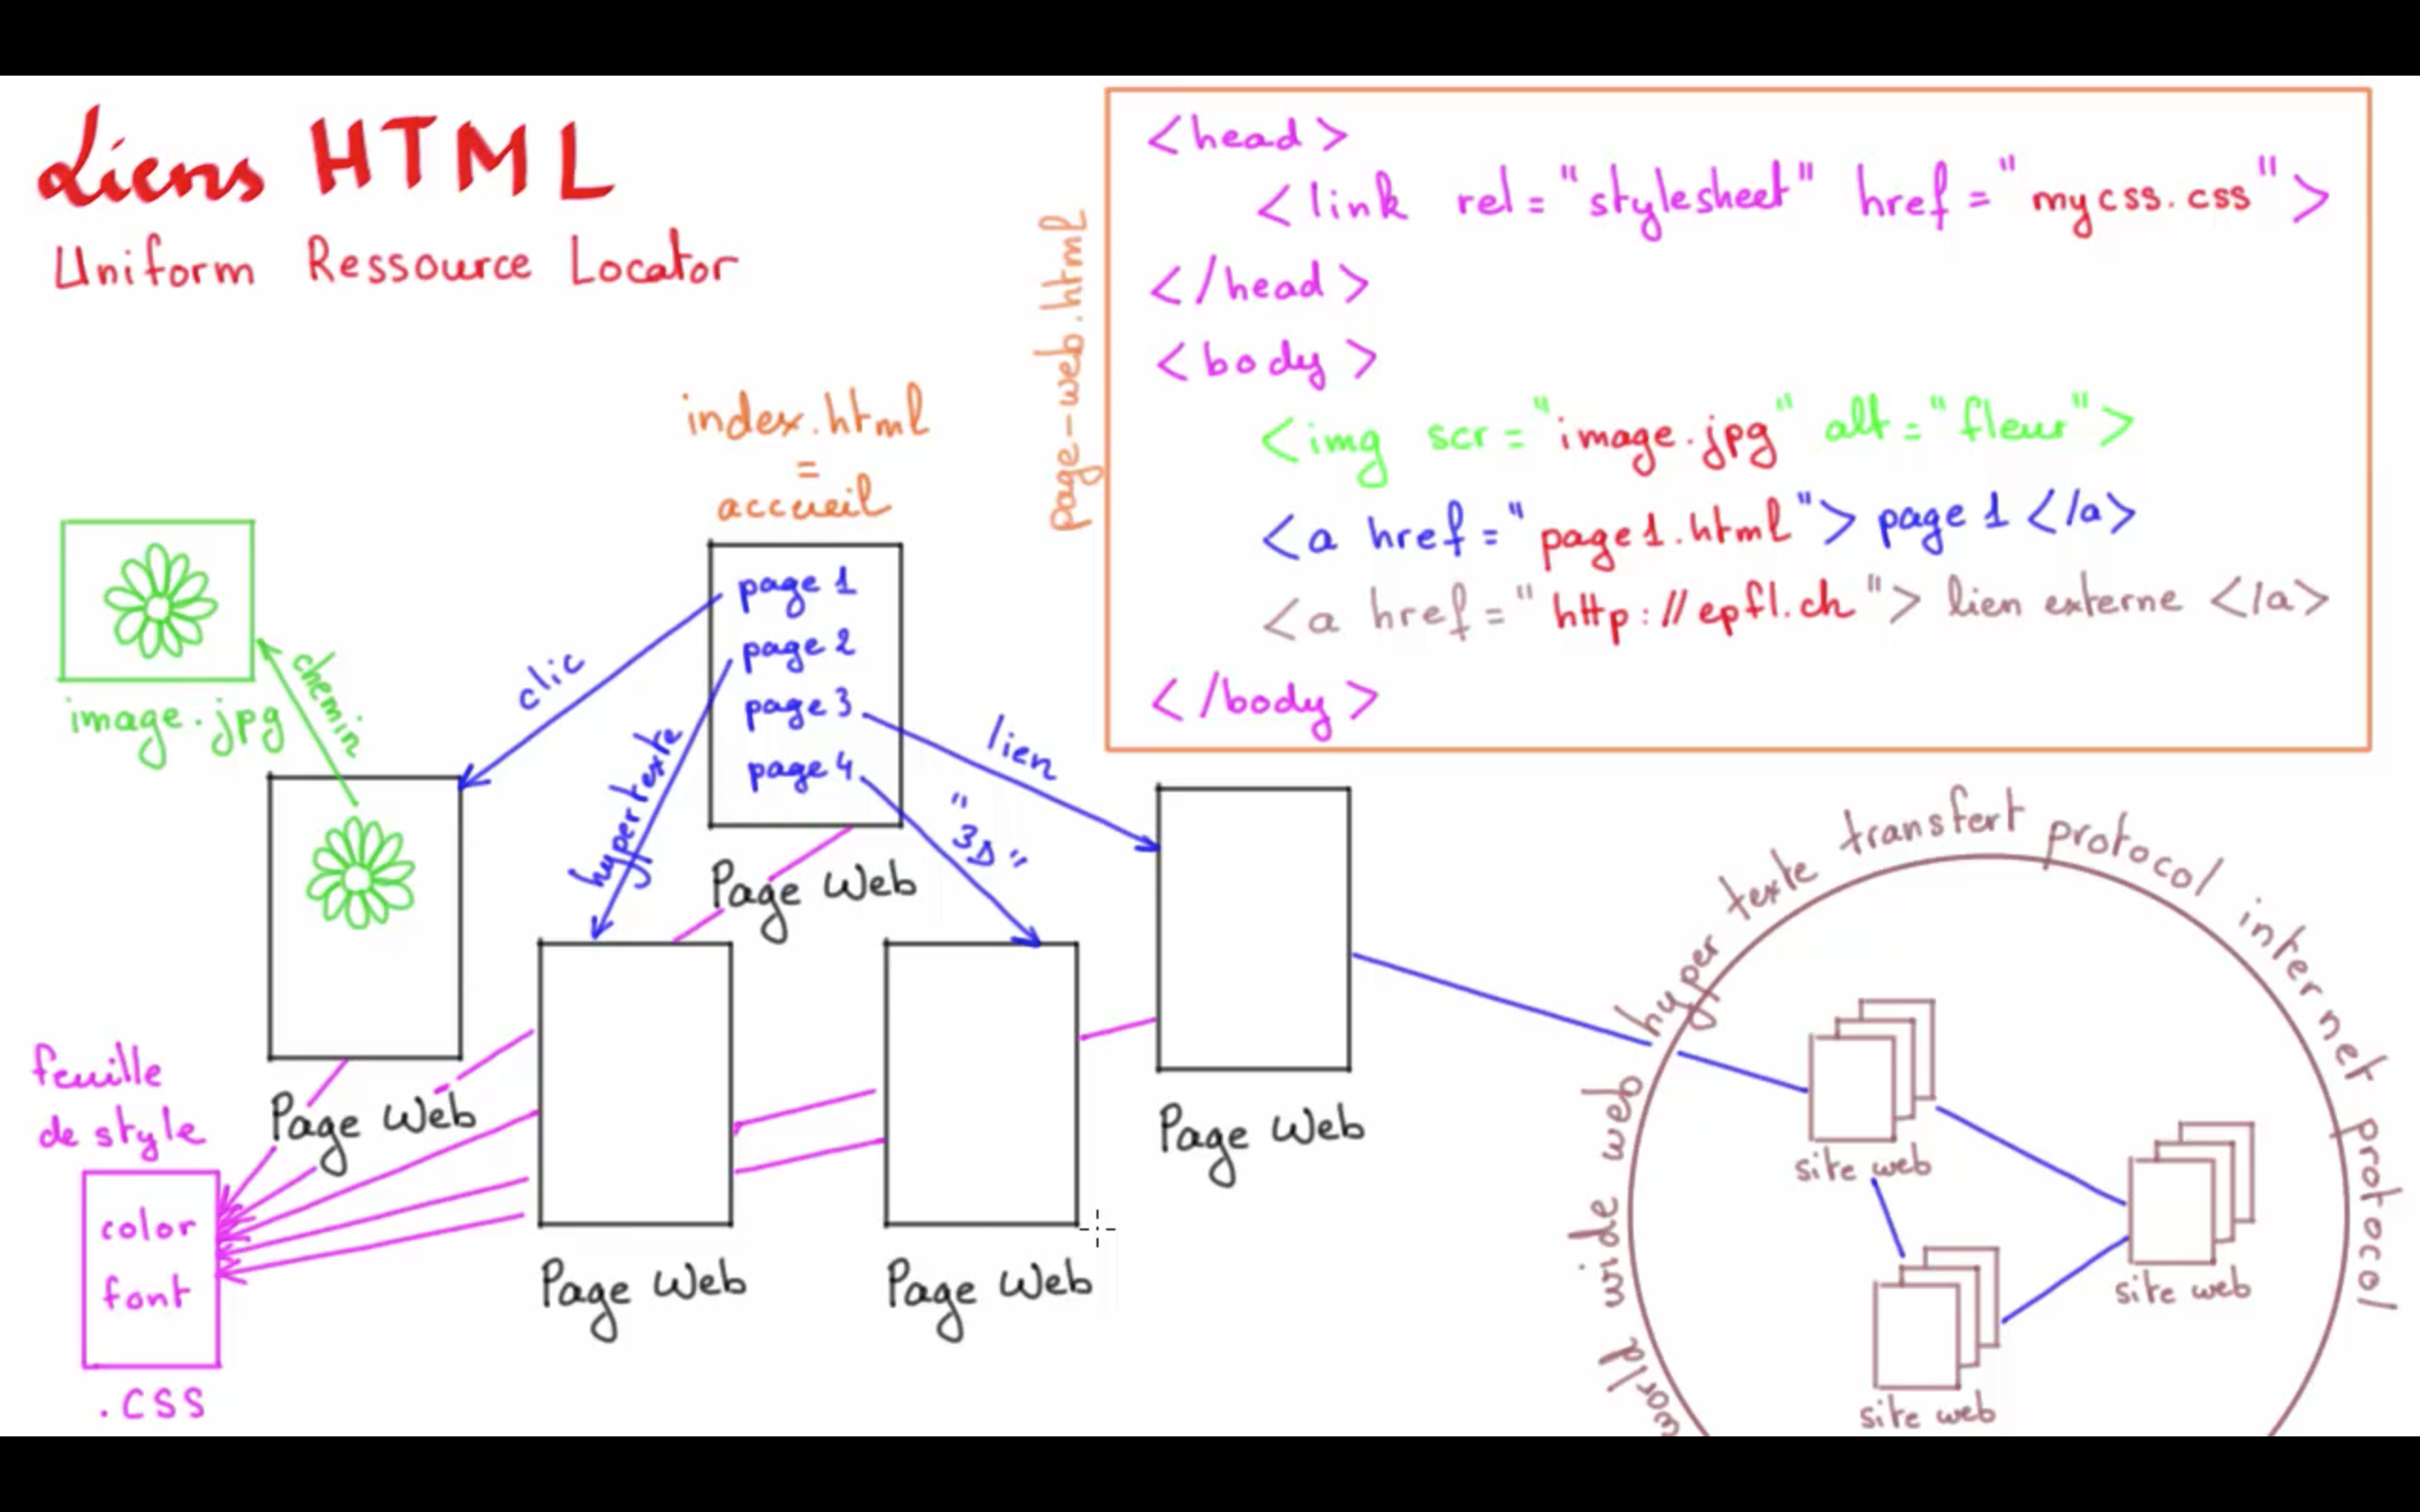 Liens HTML
Uniform Ressource Locator
page-web.html
<head>
<link rel="stylesheet" href="mycss.css">
</head>
<body>
<img scr="image.jpg" alt="fleur">
<a href="page1.html"> page 1 </a>
<a href="http://epfl.ch"> lien externe </a>
</body>
index.html
=
accueil
page 1
page 2
page 3
page 4
Page Web
clic
hypertexte
lien
"3D"
image.jpg
chemin
Page Web
Page Web
Page Web
Page Web
feuille
de style
color
font
.css
world wide web hyper texte transfert protocol internet protocol
site web
site web
site web